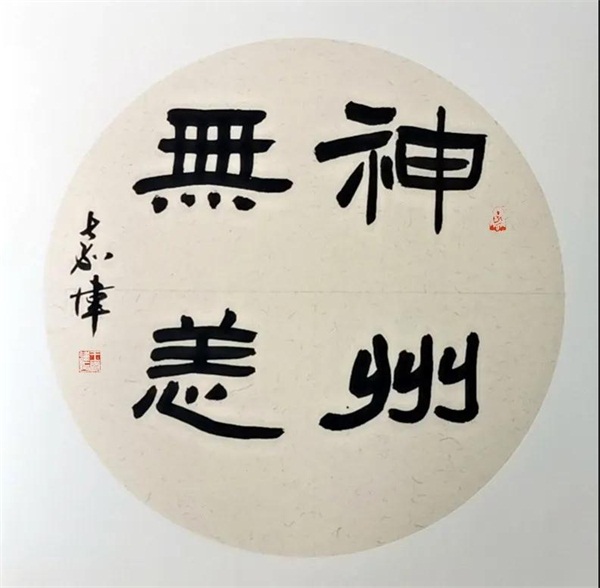 神州
無恙